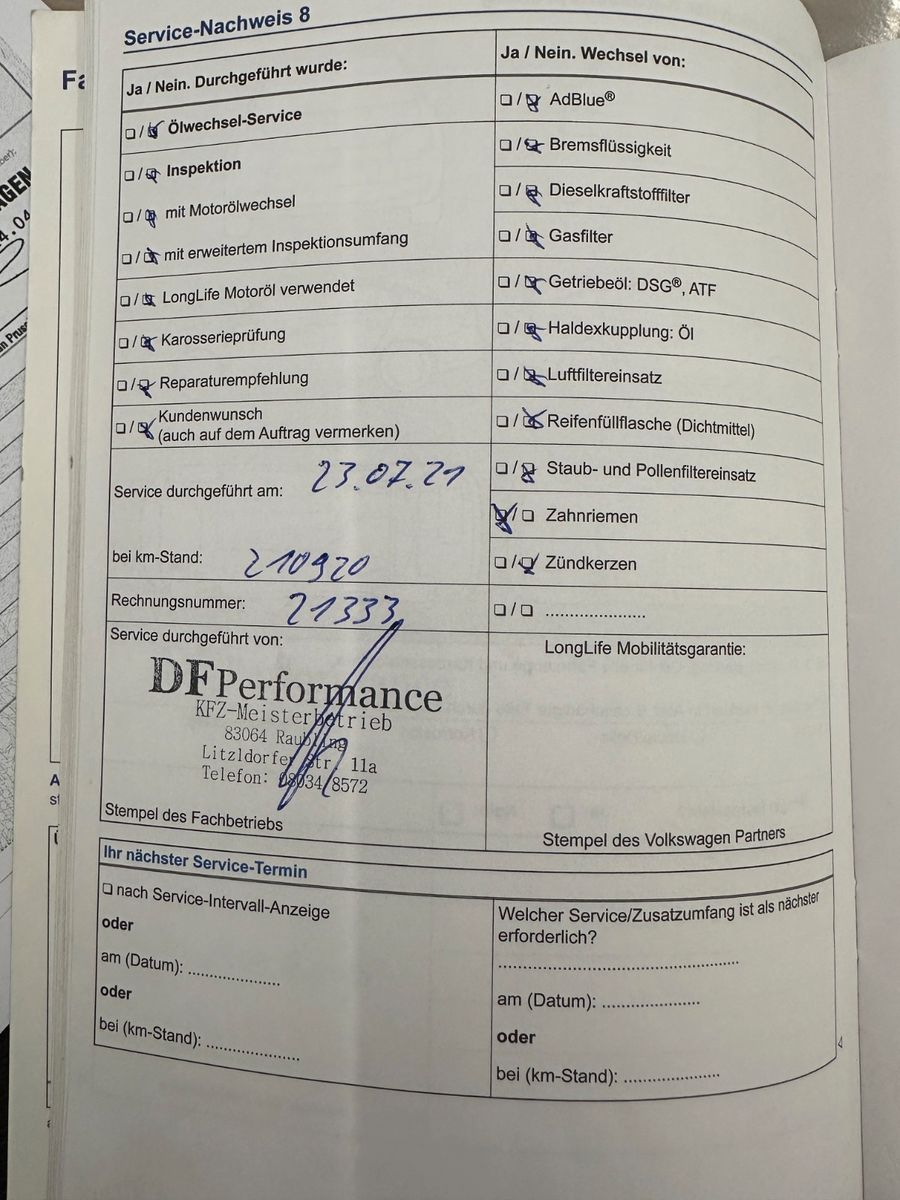 Service-Nachweis 8
Ja / Nein. Durchgeführt wurde:
☐ / ☒ Ölwechsel-Service
☐ / ☒ Inspektion
☐ / ☒ mit Motorölwechsel
☐ / ☒ mit erweitertem Inspektionsumfang
☐ / ☒ LongLife Motoröl verwendet
☐ / ☒ Karosserieprüfung
☐ / ☒ Reparaturempfehlung
☐ / ☒ Kundenwunsch
(auch auf dem Auftrag vermerken)
Service durchgeführt am: 23.07.21
bei km-Stand: 210920
Rechnungsnummer: 21333
Service durchgeführt von:
DFPerformance
KFZ-Meisterbetrieb
83064 Raubling
Litzldorfer Str. 11a
Telefon: 08034/8572
Stempel des Fachbetriebs
Ja / Nein. Wechsel von:
☐ / ☒ AdBlue®
☐ / ☒ Bremsflüssigkeit
☐ / ☒ Dieselkraftstofffilter
☐ / ☒ Gasfilter
☐ / ☒ Getriebeöl: DSG®, ATF
☐ / ☒ Haldexkupplung: Öl
☐ / ☒ Luftfiltereinsatz
☐ / ☒ Reifenfüllflasche (Dichtmittel)
☐ / ☒ Staub- und Pollenfiltereinsatz
☒ / ☐ Zahnriemen
☐ / ☒ Zündkerzen
☐ / ☐ ......................
LongLife Mobilitätsgarantie:
Stempel des Volkswagen Partners
Ihr nächster Service-Termin
☐ nach Service-Intervall-Anzeige
oder
am (Datum): ....................
oder
bei (km-Stand): ....................
Welcher Service/Zusatzumfang ist als nächster
erforderlich?
..................................................
am (Datum): ....................
oder
bei (km-Stand): ....................